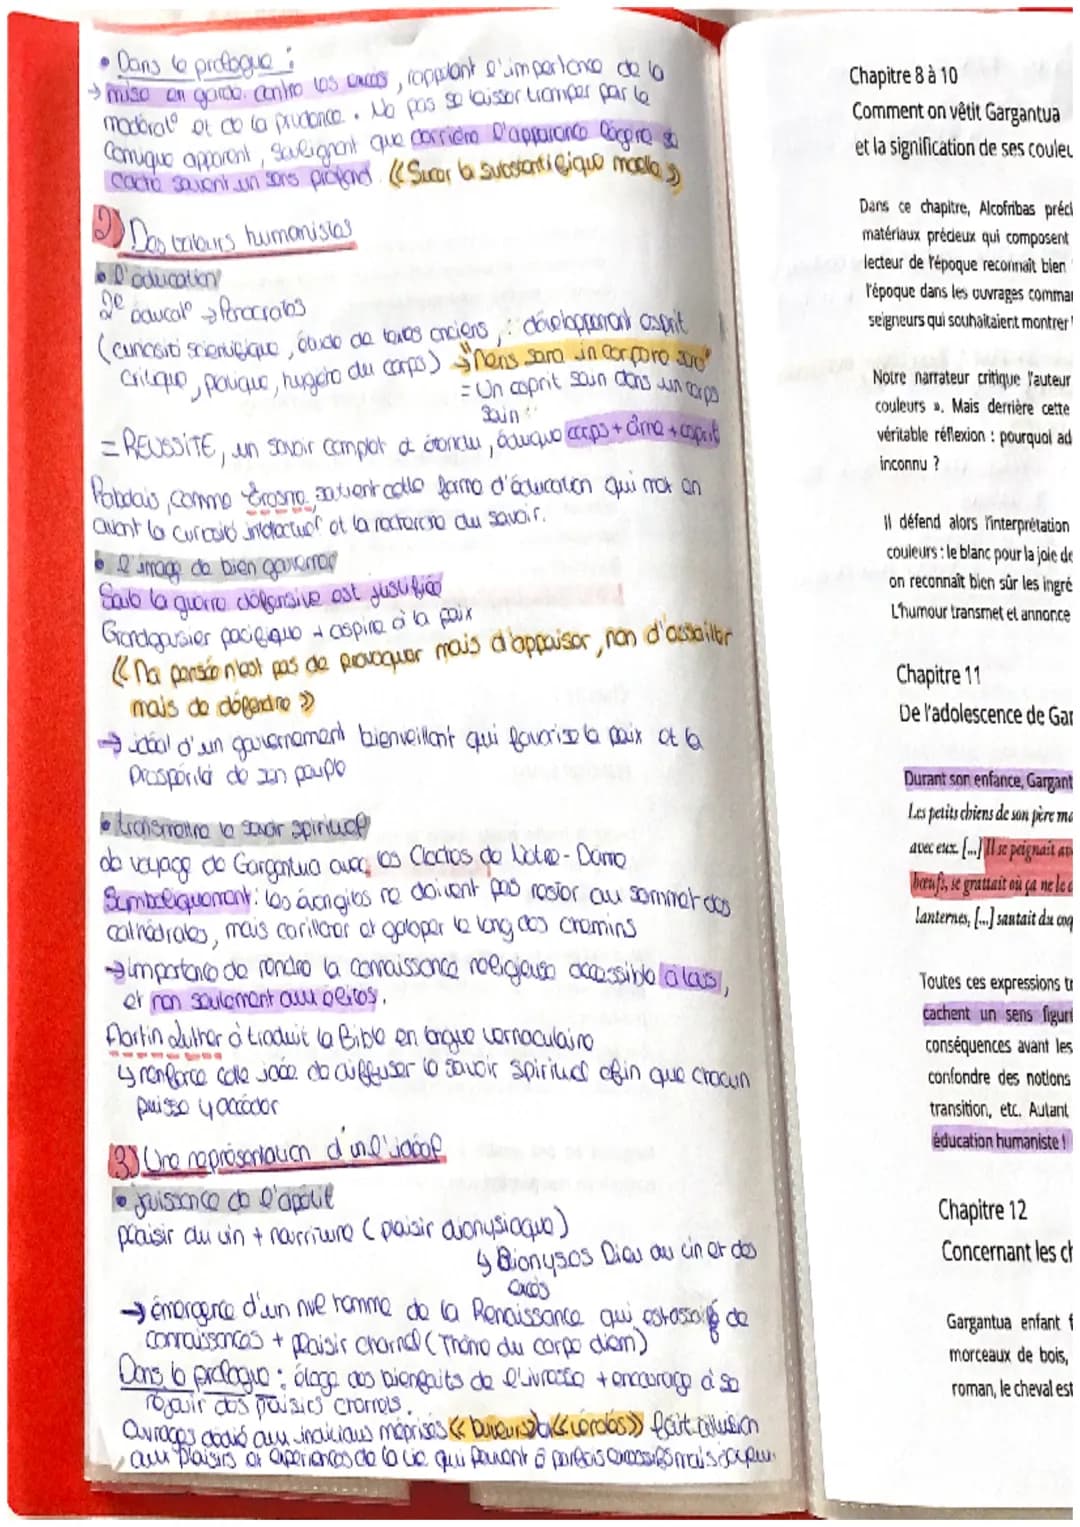 • Dans le prologue :
→ mise en garde contre les excès, rappelant l'importance de la
modérat° et de la prudence. Ne pas se laisser tromper par le
comique apparent, soulignant que derrière l'apparence légère se
cache souvent un sens profond. « Sucer la substantifique moelle »
2) Des valeurs humanistes
• l'éducation
2e éducat° → Ponocrates
(curiosité scientifique, étude de textes anciens, développement esprit
critique, politique, hygiène du corps) → "Mens sana in corpore sano"
= Un esprit sain dans un corps
sain
= REUSSITE, un savoir complet et étendu, éduque corps + âme + esprit
Rabelais, comme Erasme, soutient cette forme d'éducation qui met en
avant la curiosité intellectuel et la recherche du savoir.
• l'image de bien gouverner
Seule la guerre défensive est justifiée
Grandgousier pacifique + aspire à la paix
« Ma pensée n'est pas de provoquer mais d'appaiser, non d'assaillir
mais de défendre »
→ idéal d'un gouvernement bienveillant qui favorise la paix et la
prospérité de son peuple
• transmettre le savoir spirituel
le voyage de Gargantua avec les Cloches de Notre-Dame
Symboliquement : les évangiles ne doivent pas rester au sommet des
cathédrales, mais carillonner et galoper le long des chemins
→ importance de rendre la connaissance religieuse accessible à tous,
et non seulement aux élites.
Martin Luther à traduit la Bible en langue vernaculaire
↳ renforce cette idée de diffuser le savoir spirituel afin que chacun
puisse y accéder
3) Une représentation d'un l'idéal
• jouissance de l'apétit
plaisir du vin + nourriture (plaisir dionysiaque)
↳ Dionysos Dieu du vin et des
excès
→ émergence d'un nve homme de la Renaissance qui est assoifé de
connaissances + plaisir charnel (thème du carpe diem)
Dans le prologue : éloge des bienfaits de l'ivresse + encourage à se
réjouir des plaisirs charnels.
Ouvrages dédié aux individus méprisés « buveurs » et « vérolés » fait allusion
aux plaisirs et expériences de la vie qui peuvent ê parfois excessifs mais
Chapitre 8 à 10
Comment on vêtit Gargantua
et la signification de ses couleu
Dans ce chapitre, Alcofribas préci
matériaux précieux qui composent
lecteur de l'époque reconnaît bien
l'époque dans les ouvrages comma
seigneurs qui souhaitaient montrer
Notre narrateur critique l'auteur
couleurs ». Mais derrière cette
véritable réflexion : pourquoi ad
inconnu ?
Il défend alors l'interprétation
couleurs : le blanc pour la joie de
on reconnaît bien sûr les ingré
L'humour transmet et annonce
Chapitre 11
De l'adolescence de Gar
Durant son enfance, Gargant
Les petits chiens de son père ma
avec eux. [...] Il se peignait av
bœufs, se grattait où ça ne le d
lanternes, [...] sautait du coq
Toutes ces expressions tr
cachent un sens figuré
conséquences avant les
confondre des notions
transition, etc. Autant
éducation humaniste !
Chapitre 12
Concernant les ch
Gargantua enfant f
morceaux de bois,
roman, le cheval est